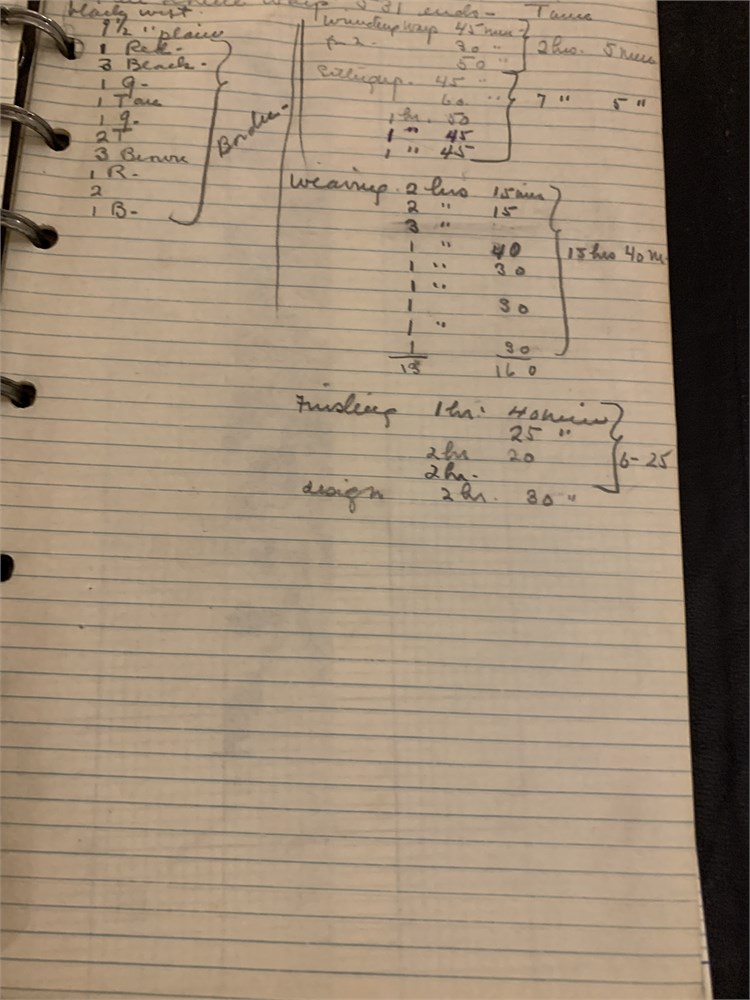 warp 531 ends - Time
black weft.
9 1/2 " plain
1 Red -
3 Black -
1 g -
1 Tan
1 g.
2 T
3 Brown
1 R -
2
1 B -
Border -
Winding warp 45 min -
for 2. 30 "
50 "
2 hrs. 5 min
45 "
60 "
1 hr. 50
1 " 45
1 " 45
7 " 5 "
Weaving 2 hrs 15 min
2 " 15
3 "
1 " 40
1 " 30
1 "
1 30
1 "
1 30
13 160
15 hrs 40 m.
Finishing 1 hr. 40 min
25 "
2 hr 20
2 hr.
6-25
design 2 hr. 30 "